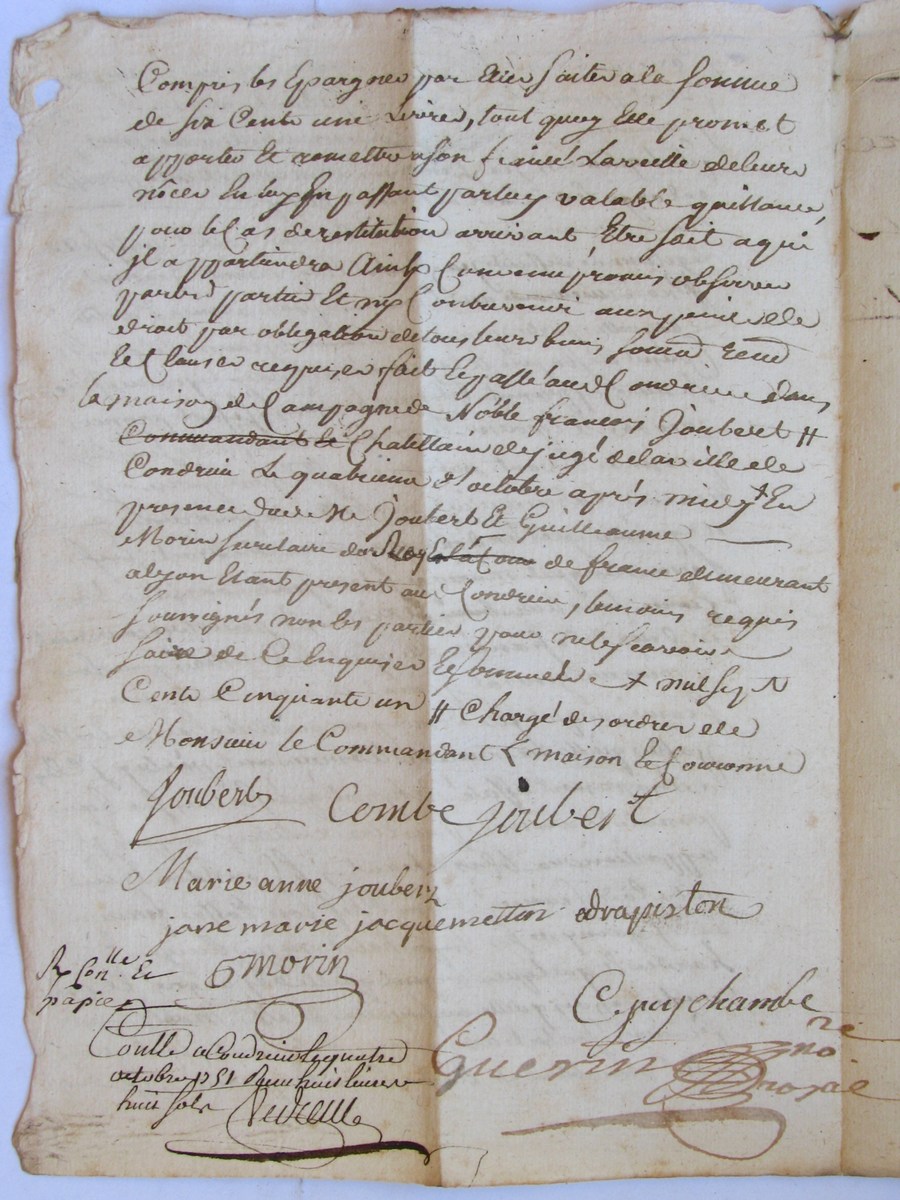 Compris les Epargnes par Elle faites a la somme
de six Cents une Livres, tout quoy Elle promet
apporter Et remettre a son fiancé La veille de leurs
nôces En luy En passant par luy valable quittance,
pour le Cas de restitution arrivant, Etre fait a qui
jl appartiendra Ainsy Convenu promis observer
par les parties Et ny Contrevenir aux peines de
droit par obligation de tous leurs biens soumd renond
et Clauses requises fait Et passé aud Condrieu dans
la maison de Campagne de Noble francois Joubert #
Commandant le Chatellain et jugé de la ville de
Condrieu Le quatrieme d'octobre après midy + En
presence dud N Joubert Et Guilleaume
Morin secretaire du Roy de france demeurant
a Lyon Etant present aud Condrieu, temoins requis
soussignés non les parties pour ne le scavoir
faire de ce Enquises Et sommées + mil sept
Cents Cinquante un # Chargé des ordres de
Monsieur le Commandant maison Et Couronne
Joubert Combe joubert
Marie anne joubert
jane marie jacquemettin drapiston
GMorin
Con.lle Et
papier
C puy chambe
Guerin no.re royal
Conllé a Condrieu le quatre
octobre 1751 Recu huit livres
huit sols